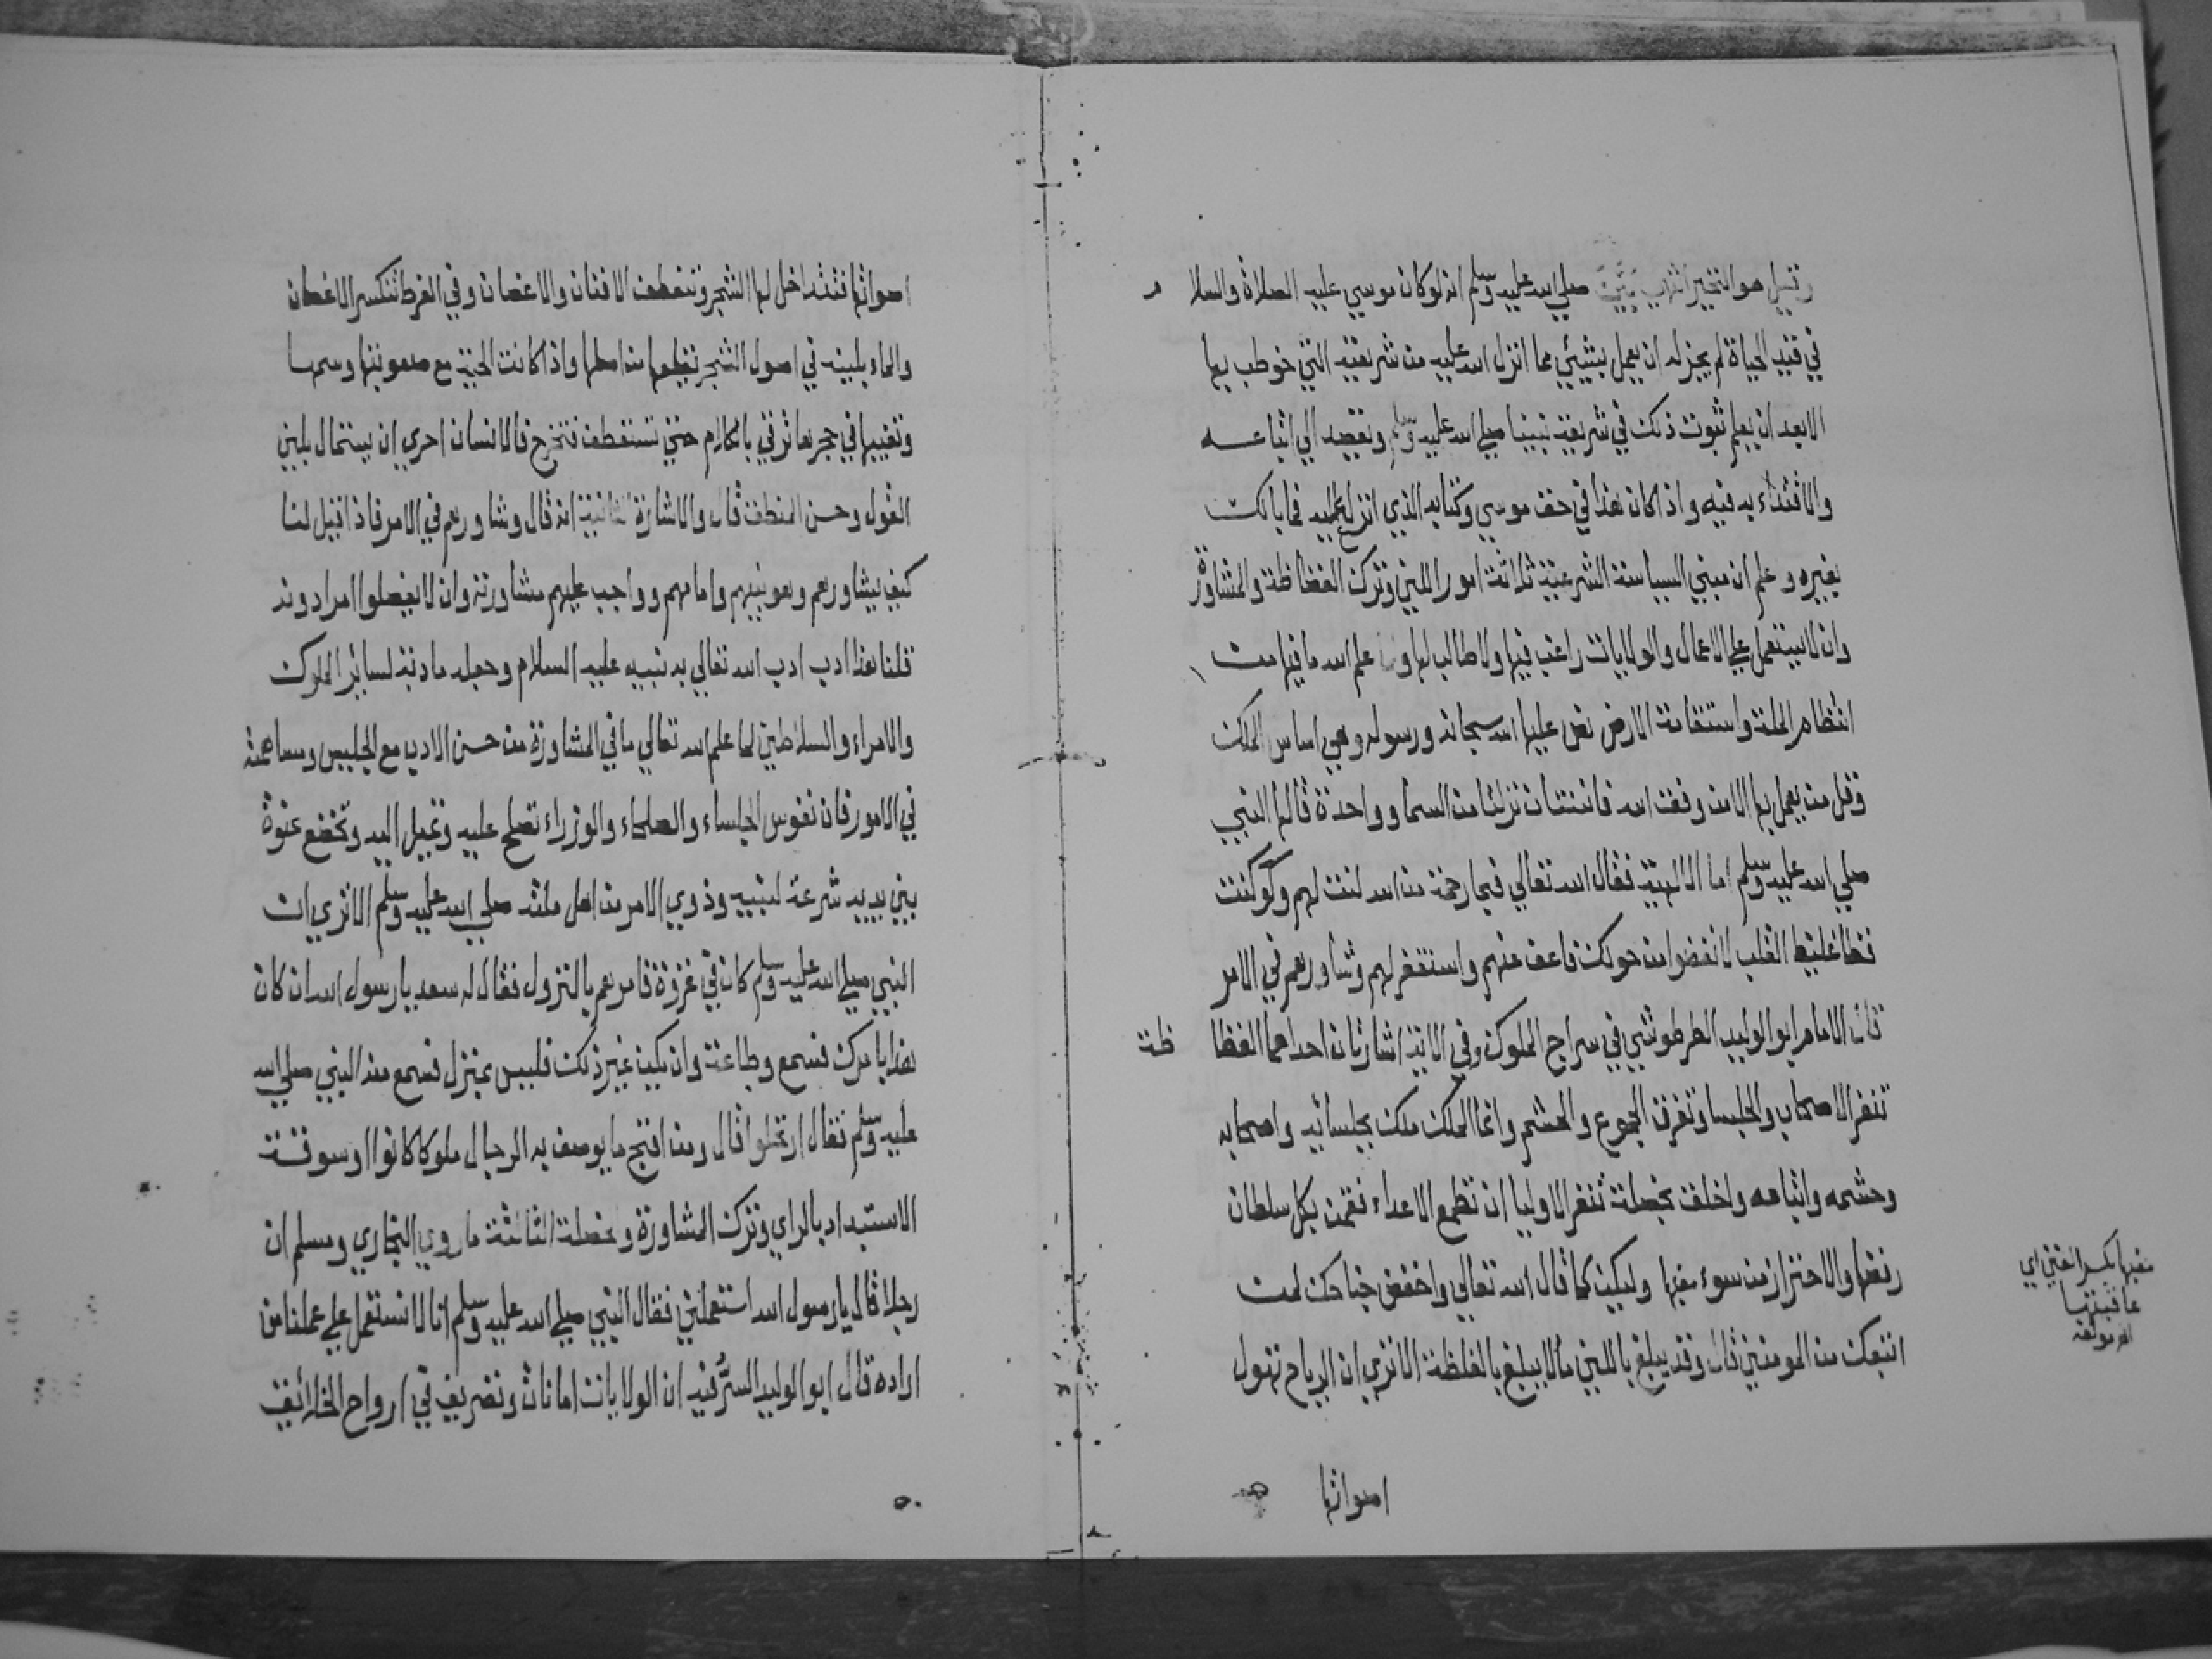 وقيل هو التخيير انتهى صلي الله عليه وسلم انه لوكان موسي عليه الصلاة والسلا م
في قيد الحياة لم يجز له ان يعمل بشيئ مما انزل الله عليه من شريعته التي خوطب بها
الابعد ان يعلم ثبوت ذلك في شريعة نبينا صلي الله عليه وسلم ويقصد الي اتباعـه
والاقتداء به فيه واذا كان هذا في حق موسي وكتابه الذي انزل عليه فما بالك
بغيره وعلم ان مبني السياسة الشرعية ثلاثة امور اللين وترك الفظاظة والمشاورة
وان لا يستعمل علي الاعمال والولايات راغب فيها ولا طالب لها علم الله ما فيها من
انتظام الملة واستقامة الارض نص عليها الله سبحانه ورسوله وهي اساس الملك
وقل من يعمل بها الا من وفقه الله فاثنتان نزلتا من السما وواحدة قالها النبي
صلي الله عليه وسلم اما الالهية فقال الله تعالي فبما رحمة من الله لنت لهم ولو كنت
فظا غليظ القلب لانفضوا من حولك فاعف عنهم واستغفر لهم وشاورهم في الامر
قال الامام ابو الوليد الطرطوشي في سراج الملوك وفي الاية اشارتان احداهما الفظا ظة
تنفر الاصحاب والجلسا وتفرق الجموع والحشم وانما الملك ملك بجلسائه واصحابه
وحشمه واتباعه واخلق بخصلة تنفر الاوليا ان تطمع الاعداء فقمن بكل سلطان
رفضها والاحتراز من سوء مغبها وليكن كما قال الله تعالي واخفض جناحك لمن
اتبعك من المومنين قال وقد يبلغ باللين مالا يبلغ بالغلظة الا تري ان الرياح تهول
اصواتها
مغبها بكسر الغين اي
عاقبتها
اصواتها فتتداخل لها الشجر وتنعطف الافنان والاغصان وفي الفرط تنكسر الاغصان
والماء بلينه في اصول الشجر تقلعها من اصلها واذا كانت الحية مع صعوبتها وسمها
وتغيبها في جحرها ترقي بالكلام حتي تستعطف فتخرج فالانسان احري ان يستمال بلين
القول وحسن المنطق قال والاشارة الثانية انه قال وشاورهم في الامر فاذا قيل لنا
كيف يشاورهم وهو نبيهم وامامهم وواجب عليهم مشاورته وان لا يفصلوا امرا دونه
قلنا هذا ادب ادب الله تعالي به نبيه عليه السلام وجعله مادبة لسائر الملوك
والامراء والسلاطين لما علم الله تعالي ما في المشاورة من حسن الادب مع الجليس ومساهمته
في الامور فان نفوس الجلساء والصلحاء والوزراء تصلح عليه وتميل اليه وتخضع عنوة
بين يديه شرعة لنبيه وذوي الامر من اهل ملته صلي الله عليه وسلم الا تري ان
النبي صلي الله عليه وسلم كان في غزوة فامرهم بالنزول فقال له سعد يا رسول الله ان كان
هذا بامرك فسمع وطاعة وان يكن غير ذلك فليس بمنزل فسمع منه النبي صلي الله
عليه وسلم فقال ارتحلوا قال ومن اقبح ما يوصف به الرجال ملوكا كانوا او سوقة
الاستبداد بالراي وترك المشاورة والخصلة الثالثة ما روي البخاري ومسلم ان
رجلا قال يا رسول الله استعملني فقال النبي صلي الله عليه وسلم انا لا نستعمل علي عملنا من
اراده قال ابو الوليد السر فيه ان الولايات امانات وتصريف في ارواح الخلائق